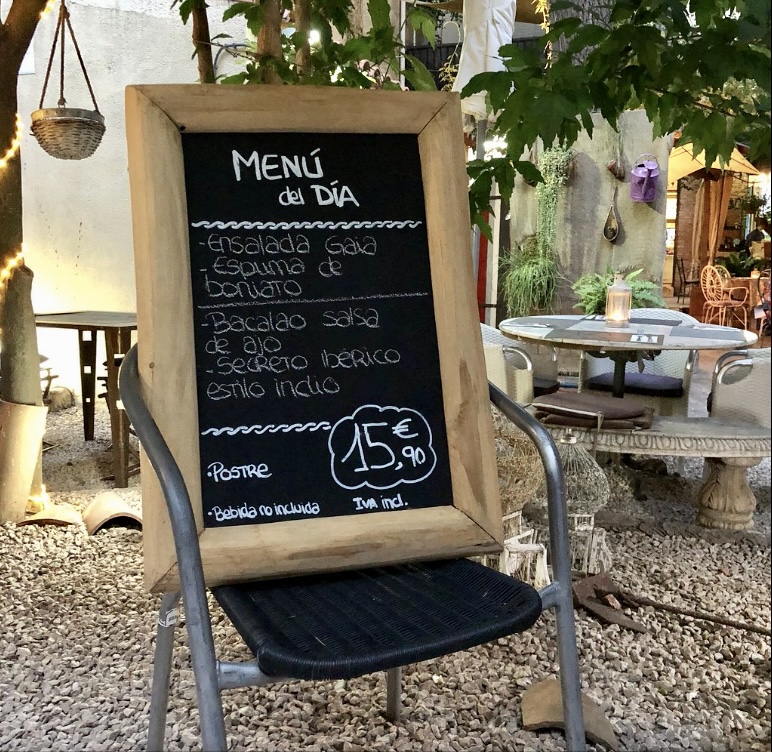 MENÚ
del DÍA
-Ensalada Gaia
-Espuma de
boniato
-Bacalao salsa
de ajo
-Secreto Ibérico
estilo inclio
15,90€
•Postre
•Bebida no incluida
IVA incl.